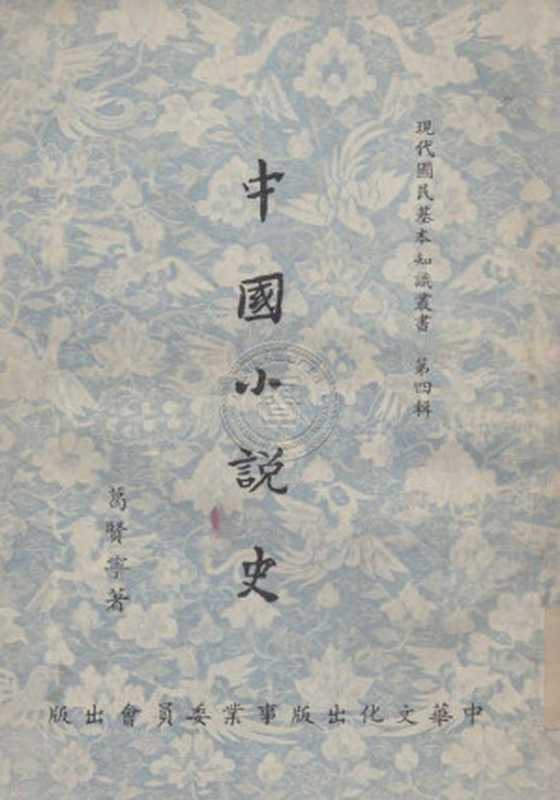 現代國民基本知識叢書 第四輯
中國小說史
葛賢寧著
中華文化出版事業委員會出版